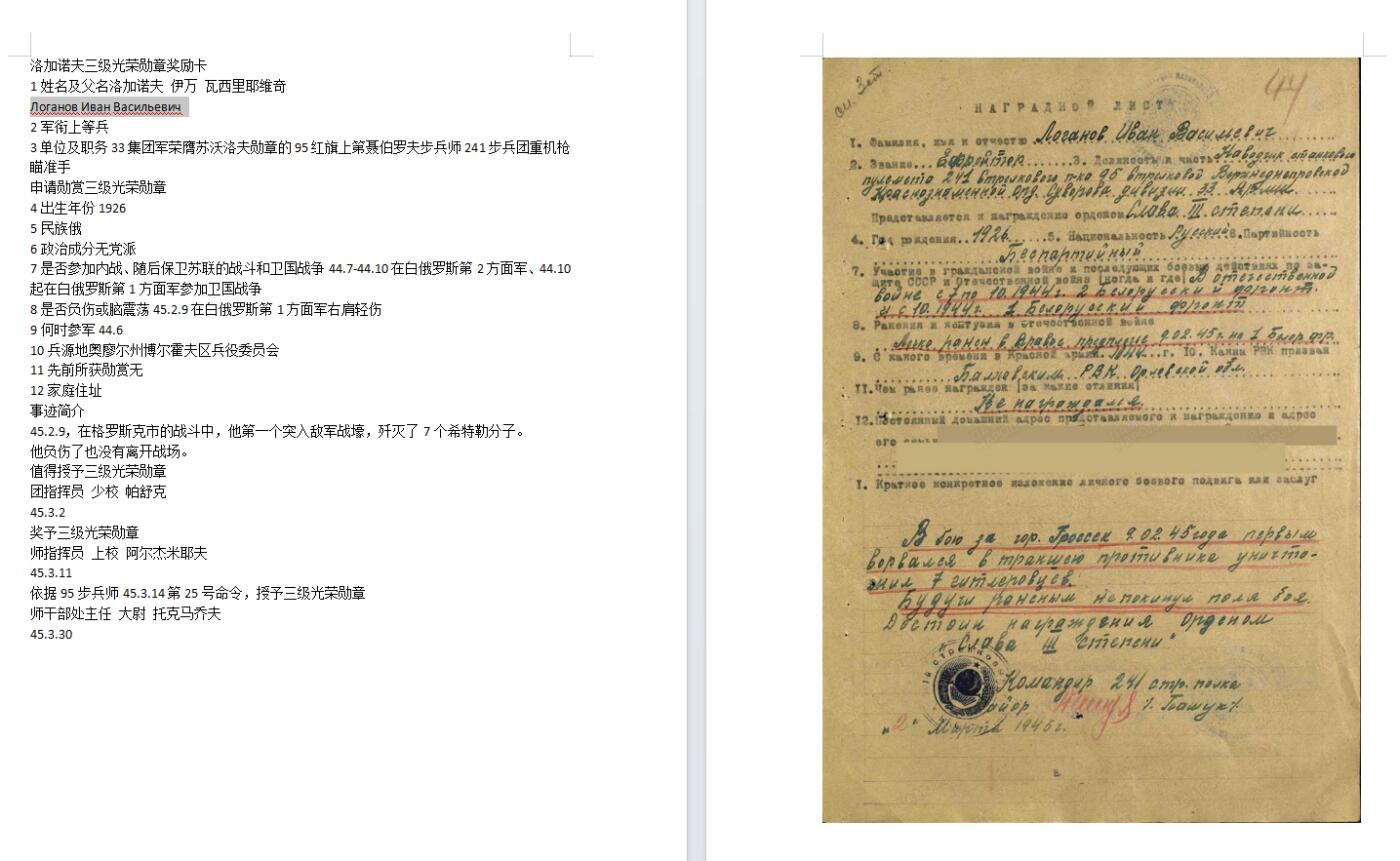 洛加诺夫三级光荣勋章奖励卡
1 姓名及父名洛加诺夫 伊万 瓦西里耶维奇
Логанов Иван Васильевич
2 军衔上等兵
3 单位及职务 33 集团军荣膺苏沃洛夫勋章的 95 红旗上第聂伯罗夫步兵师 241 步兵团重机枪
瞄准手
申请勋赏三级光荣勋章
4 出生年份 1926
5 民族俄
6 政治成分无党派
7 是否参加内战、随后保卫苏联的战斗和卫国战争 44.7-44.10 在白俄罗斯第 2 方面军、44.10
起在白俄罗斯第 1 方面军参加卫国战争
8 是否负伤或脑震荡 45.2.9 在白俄罗斯第 1 方面军右肩轻伤
9 何时参军 44.6
10 兵源地奥廖尔州博尔霍夫区兵役委员会
11 先前所获勋赏无
12 家庭住址
事迹简介
45.2.9，在格罗斯克市的战斗中，他第一个突入敌军战壕，歼灭了 7 个希特勒分子。
他负伤了也没有离开战场。
值得授予三级光荣勋章
团指挥员 少校 帕舒克
45.3.2
奖予三级光荣勋章
师指挥员 上校 阿尔杰米耶夫
45.3.11
依据 95 步兵师 45.3.14 第 25 号命令，授予三级光荣勋章
师干部处主任 大尉 托克马乔夫
45.3.30
44
НАГРАДНОЙ ЛИСТ
1. Фамилия, имя и отчество Логанов Иван Васильевич
2. Звание... Ефрейтор.......3. Должность и часть Наводчик станкового
пулемета 241 стрелкового п-ка 95 стрелковой Верхнеднепровской
Краснознаменной орд. Суворова дивизии 33 Армии
Представляется к награждению орденом Слава III степени
4. Год рождения..1926......5. Национальность Русский 6.Партийность
Беспартийный
7. Участие в гражданской войне и последующих боевых действиях по за-
щите СССР и Отечественной войне [когда и где] В отечественной
войне с 7 по 10.1944г. 2 Белорусский фронт.
и с 10.1944г. 1 Белорусский фронт
8. Ранения и контузия в отечественной войне
Легко ранен в правое предплечие 9.02.45г. на 1 Белор фр.
9. С какого времени в Красной армии 1944...г. 10. Каким РВК призван
РВК Орловской обл.
11.Чем ранее награжден [за какие отличия]
Не награждался.
12.Постоянный домашний адрес представляемого к награждению и адрес
его семьи
1. Краткое конкретное изложение личного боевого подвига или заслуг
В бою за гор. Гроссек 9.02.45 года первым
ворвался в траншею противника уничто-
жил 7 гитлеровцев.
Будучи раненым непокинул поля боя.
Достоин награждения Орденом
"Слава III степени"
Командир 241 стр. полка
майор /Пашук/
"2" Марта 1945г.